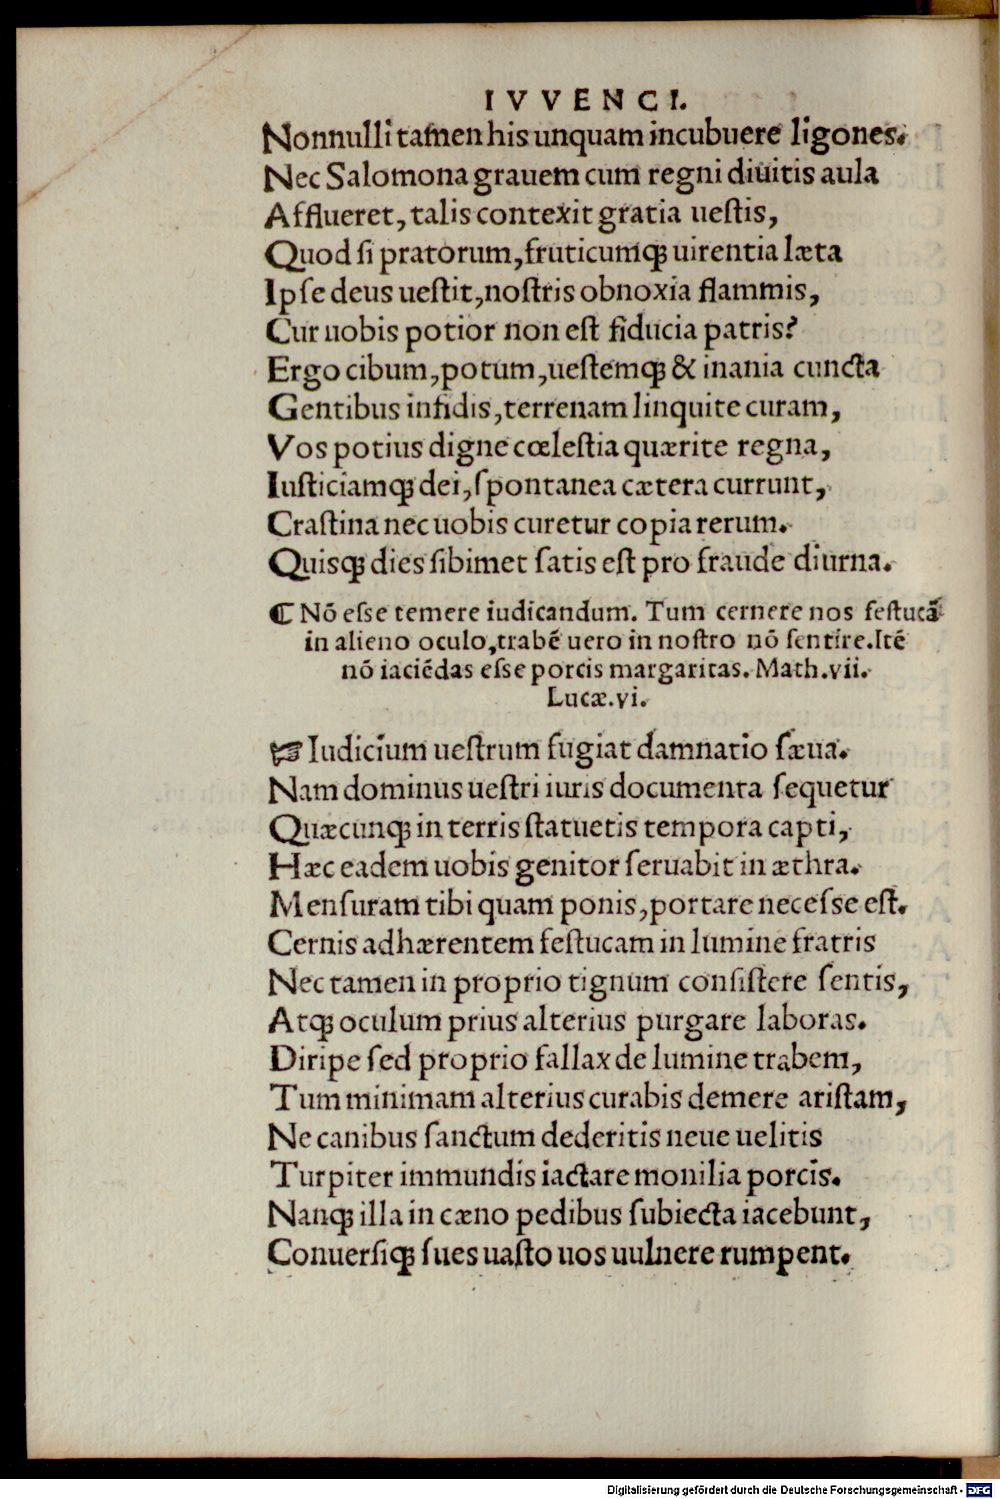 IVVENCI.
Nonnulli tamen his unquam incubuere ligones.
Nec Salomona grauem cum regni diuitis aula
Afflueret, talis contexit gratia uestis,
Quod si pratorum, fruticumqꝫ uirentia læta
Ipse deus uestit, nostris obnoxia flammis,
Cur uobis potior non est fiducia patris?
Ergo cibum, potum, uestemqꝫ & inania cuncta
Gentibus infidis, terrenam linquite curam,
Vos potius digne cœlestia quærite regna,
Iusticiamqꝫ dei, spontanea cætera currunt,
Crastina nec uobis curetur copia rerum.
Quisqꝫ dies sibimet satis est pro fraude diurna.
¶ Nō esse temere iudicandum. Tum cernere nos festucā
in alieno oculo, trabē uero in nostro nō sentire. Itē
nō iaciēdas esse porcis margaritas. Math. vii.
Lucæ. vi.
☞ Iudicium uestrum fugiat damnatio sæua.
Nam dominus uestri iuris documenta sequetur
Quæcunqꝫ in terris statuetis tempora capti,
Hæc eadem uobis genitor seruabit in æthra.
Mensuram tibi quam ponis, portare necesse est.
Cernis adhærentem festucam in lumine fratris
Nec tamen in proprio tignum consistere sentis,
Atqꝫ oculum prius alterius purgare laboras.
Diripe sed proprio fallax de lumine trabem,
Tum minimam alterius curabis demere aristam,
Ne canibus sanctum dederitis neue uelitis
Turpiter immundis iactare monilia porcis.
Nanqꝫ illa in cæno pedibus subiecta iacebunt,
Conuersiqꝫ sues uasto uos uulnere rumpent.
Digitalisierung gefördert durch die Deutsche Forschungsgemeinschaft - DFG